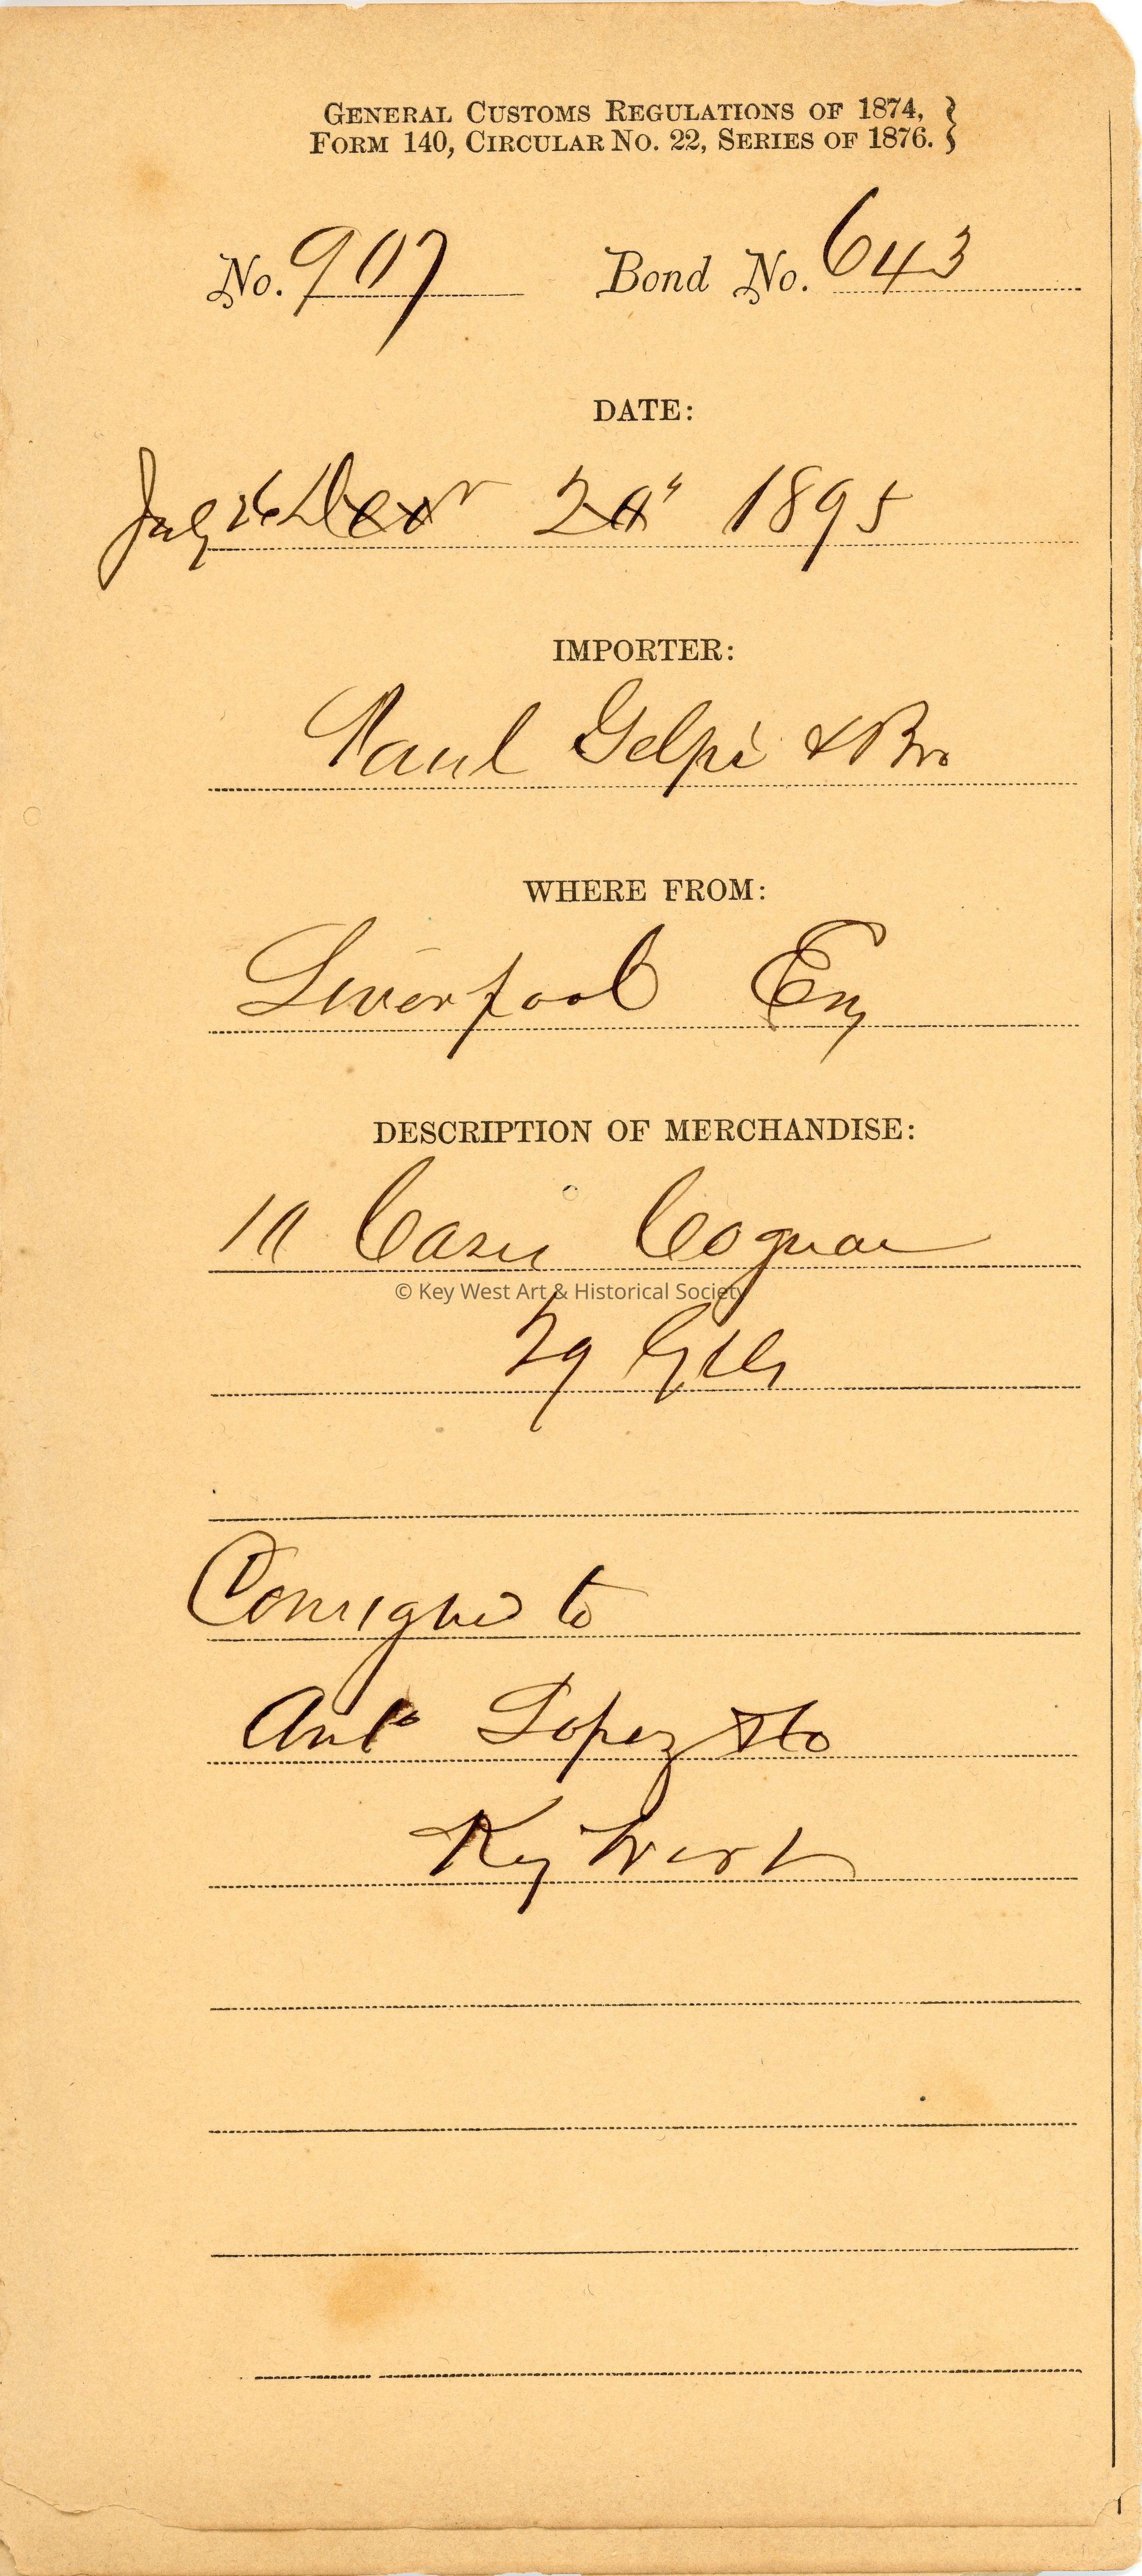 GENERAL CUSTOMS REGULATIONS OF 1874,
FORM 140, CIRCULAR NO. 22, SERIES OF 1876.
No. 907 Bond No. 643
DATE:
July 26 Decr 20" 1895
IMPORTER:
Paul Gelpi & Bro
WHERE FROM:
Liverpool Eng
DESCRIPTION OF MERCHANDISE:
10 Cases Cognac
© Key West Art & Historical Society
29 Glls
Consigned to
Anto Lopez & Co
Key West